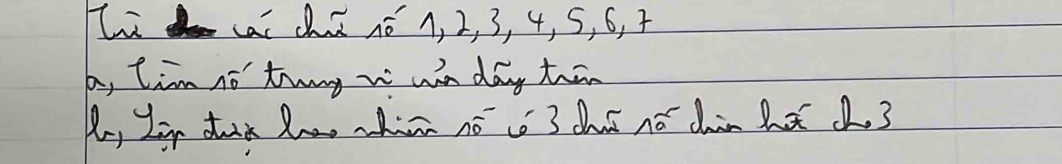 Từ các chữ số 1, 2, 3, 4, 5, 6, 7
a, Tìm số trung vị của dãy trên
b, Lập được bao nhiêu số có 3 chữ số chia hết cho 3